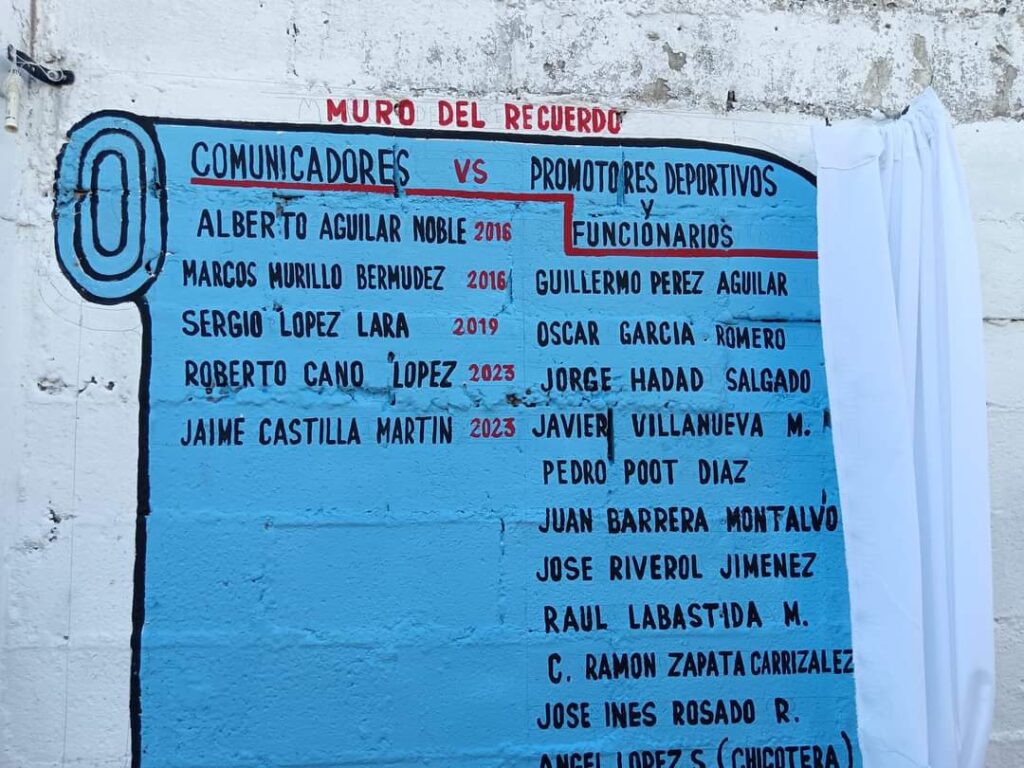 MURO DEL RECUERDO
COMUNICADORES VS PROMOTORES DEPORTIVOS
Y
FUNCIONARIOS
ALBERTO AGUILAR NOBLE 2016
MARCOS MURILLO BERMUDEZ 2016
SERGIO LOPEZ LARA 2019
ROBERTO CANO LOPEZ 2023
JAIME CASTILLA MARTIN 2023
GUILLERMO PEREZ AGUILAR
OSCAR GARCIA ROMERO
JORGE HADAD SALGADO
JAVIER VILLANUEVA M.
PEDRO POOT DIAZ
JUAN BARRERA MONTALVO
JOSE RIVEROL JIMENEZ
RAUL LABASTIDA M.
C. RAMON ZAPATA CARRIZALEZ
JOSE INES ROSADO R.
ANGEL LOPEZ S (CHICOTERA)